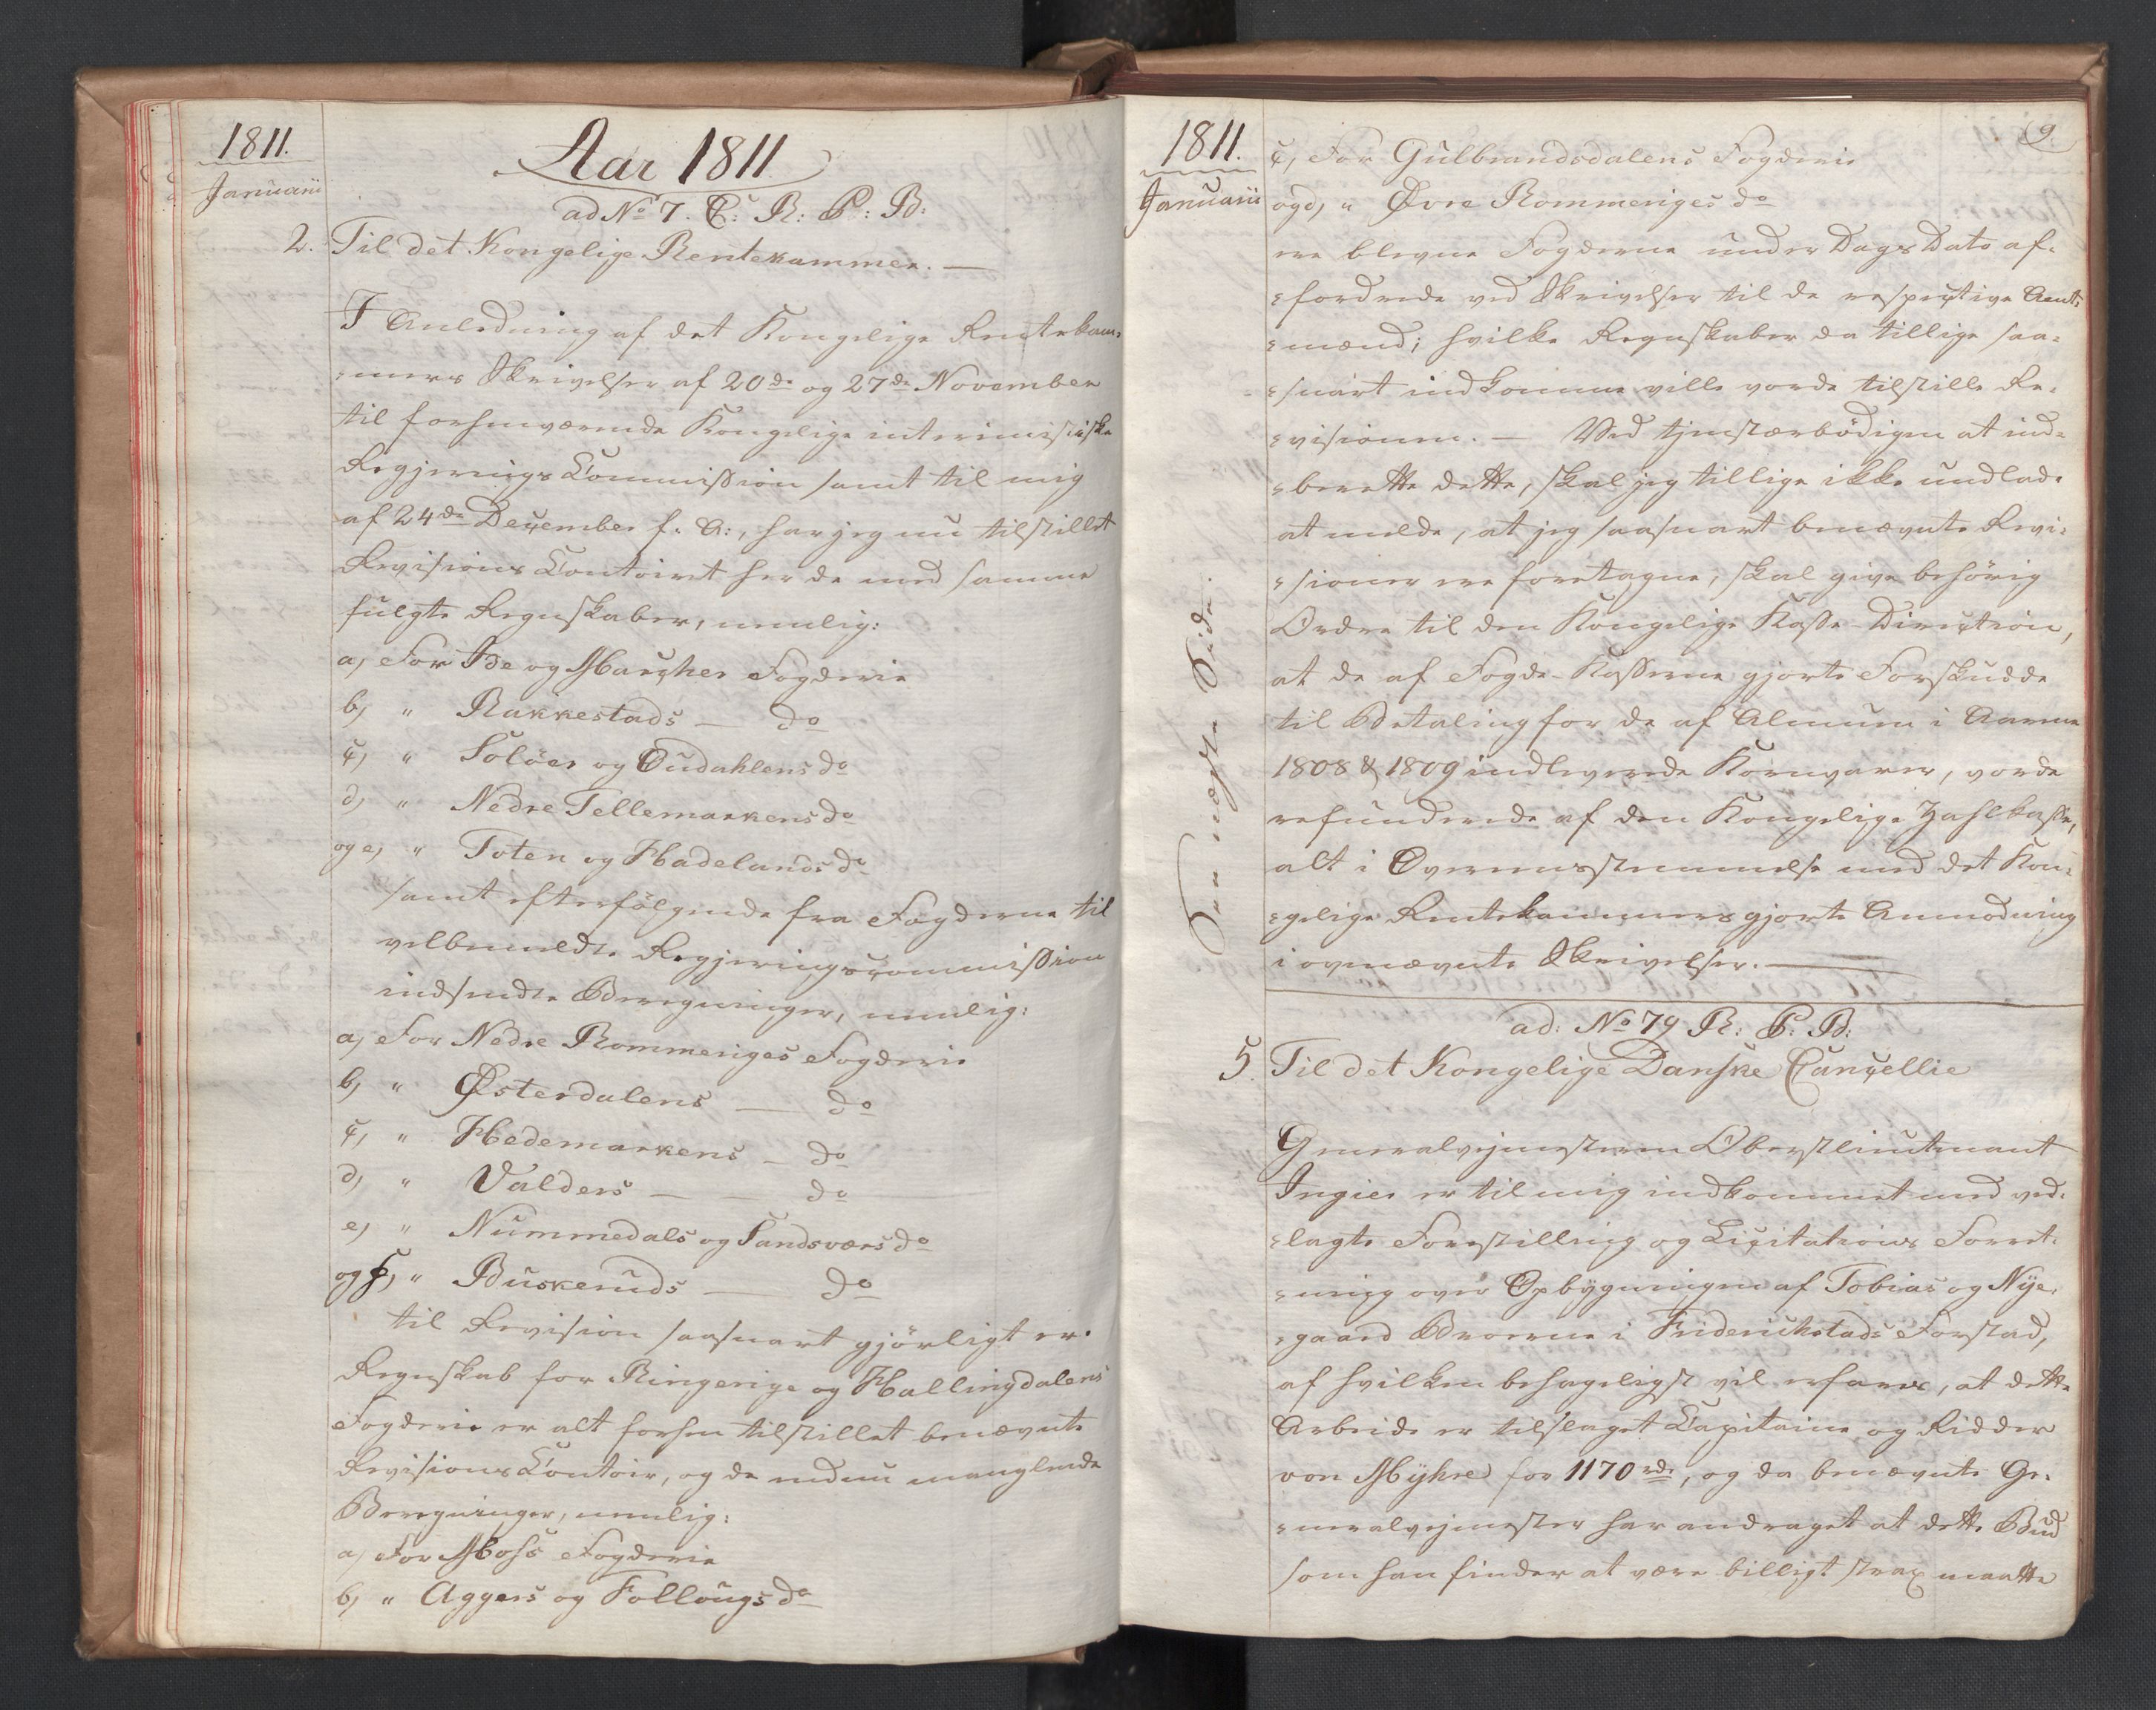 1811.
Januarii
Aar 1811
ad No 7. C: R: P: B:
2. Til det Kongelige Rentekammer. —
I Anledning af det Kongelige Rentekam-
-mers Skrivelser af 20de og 27de November
til forhenværende Kongelige interimistiske
Regjerings Commission samt til mig
af 24de December f. A:, har jeg nu tilstillet
Revisions Contoiret her de med samme
fulgte Regnskaber, nemlig:
a, For Ide og Marcher Fogderie
b, " Rakkestads — do
c, " Soløer og Oudahlens do
d, " Nedre Tellemarkens do
og e, " Toten og Hadelands do
samt efterfølgende fra Fogderne til
velbemeldte Regjeringscommission
indsendte Beregninger, nemlig:
a, For Nedre Rommeriges Fogderie
b, " Østerdalens — do
c, " Hedemarkens — do
d, " Valders — — do
e, " Nummedals og Sandsværs do
og f, " Buskeruds — do
til Revision saasnart gjørligt er.
Regnskab for Ringerige og Hallingdalens
Fogderie er alt forhen tilstillet benævnte
Revisions Contoir, og de endnu manglende
Beregninger, nemlig:
a, For Moss Fogderie
b, " Aggers og Follougs do
1811.
Januarii
9
c, For Gulbrandsdalens Fogderie
og d, " Øvre Rommeriges do
ere blevne Fogderne under Dags Dato af-
-fordrede ved Skrivelser til de respective Amt-
-mænd; hvilke Regnskaber da tillige saa-
-snart indkomme ville vorde tilstille Re-
-visionen. — Ved tjenstærbødigen at ind-
-berette dette, skal jeg tillige ikke undlade
at melde, at jeg saasnart benævnte Revi-
-sioner ere foretagne, skal give behörig
Ordre til den Kongelige Kasse-Direction,
at de af Fogde-Kasserne gjorte Forskudde
til Betaling for de af Almuen i Aarene
1808 & 1809 indleverede Kornvarer, vorde
refunderede af den Kongelige Zahlkasse,
alt i Overensstemmelse med det Kon-
-gelige Rentekammers gjorte Anmodning
i ovenævnte Skrivelser. —
See næste Side.
ad: No 79 R: P: B:
5. Til det Kongelige Danske Cancellie
Generalvejmesteren Oberstlieutenant
Ingier er til mig indkommet med ved-
-lagte Forestilling og Licitations Forret-
-ning over Opbygningen af Tobias og Nye-
-gaard Broerne i Friderichstads Forstad,
af hvilken behageligst vil erfares, at dette
Arbeide er tilslaget Capitaine og Ridder
von Myhre for 1170 rdr, og da benævnte Ge-
-neralvejmester har andraget at dette Bud
som han finder at være billigt strax maatte